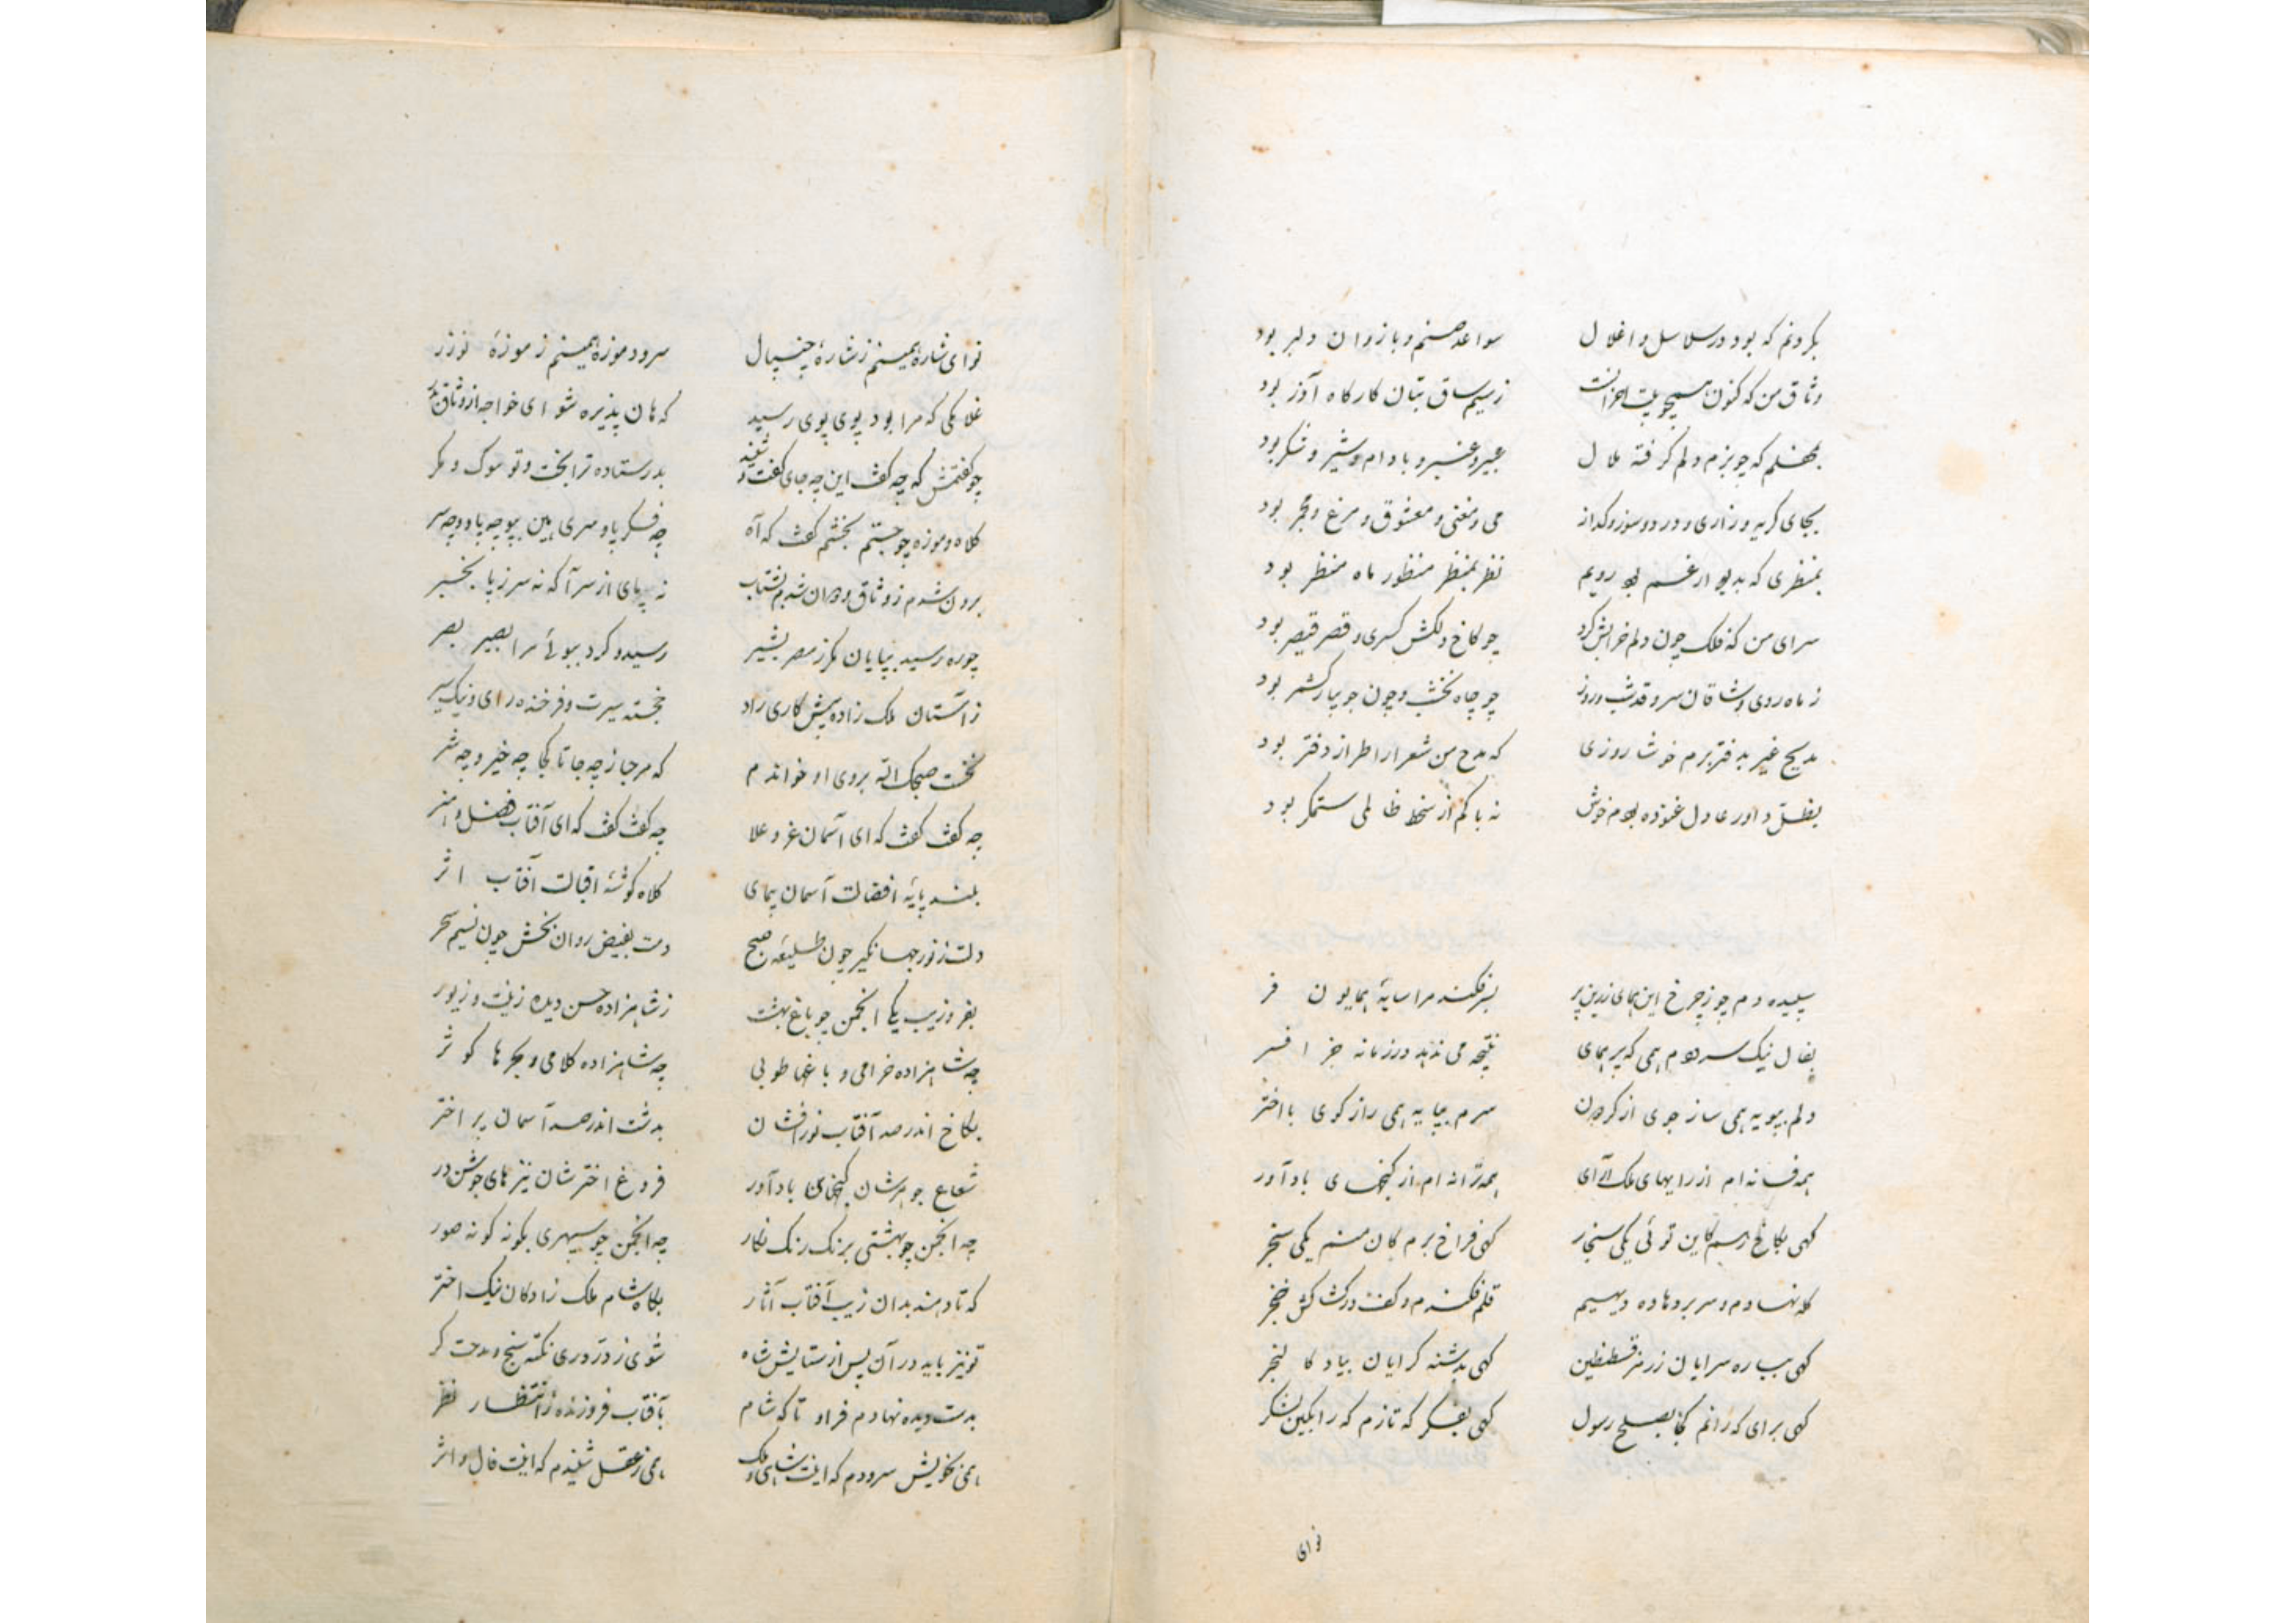 بگردنم که بود در سلاسل و اغلال سواعد صنم و بازوان دلبر بود
وثاق من که کنون همچو بیت احزانست ز سیم ساق بتان کارگاه آذر بود
بمحفلم که چو بزم دلم گرفته ملال عبیر و عنبر و بادام و شیر و شکر بود
بجای گریه و زاری و درد و سوز و گداز می و مغنی و معشوق و مرغ و مجمر بود
بمنظری که بدیوار غم بود رویم نظر بمنظر منظور ماه منظر بود
سرای من که فلک چون دلم خرابش کرد چو کاخ دلکش کسری و قصر قیصر بود
ز ماه روی وشاقان سرو قد شب و روز چو چاه نخشب و چون جویبار کشمر بود
مدیح غیر به دفتر برم خوشا روزی که مدح من شعرا را طراز دفتر بود
بظل داور عادل غنوده بودم خوش نه باکم از سخط ظالمی ستمگر بود
سپیده دم چو ز چرخ این همای زرین پر بسر فکند مرا سایهٔ همایون فر
بفال نیک سرودم همی که پر همای نتیجه می ندهد در زمانه جز افسر
دلم بپویه همی ساز جوی از گردون سرم بپایه همی راز گوی با اختر
همه فسانه ام از رایهای ملک آرای همه ترانه ام از گنجهای باد آور
گهی بکاخ رسم کاین توئی یکی سنجار گهی فراخ برم کان منم یکی سنجر
کله نهادم و سر بر و ماده دیهیم قلم فکندم و کف در کشاکش خنجر
گهی بباره سرایان ز رمز قسطنطین گهی بدشنه گرایان بیاد کالنجر
گهی برای که رانم کجا بصلح رسول گهی بفکر که تازم که را بکین لشکر
نوای
نوای شارهٔ همینم ز شارهٔ چیپال سرود موزهٔ همینم ز موزهٔ نوزر
غلامکی که مرا بود پوی پوی رسید که هان پذیره شو ای خواجه از وثاق بدر
چو گفتمش که چه گفت این چه جای گفت و شنید بدر ستاده ترا بخت و تو بوک و مگر
کلاه و موزه چو جستم بخشم گفت که آه چه فکر پا و سری بین بپو چه پا و چه سر
برون شدم ز وثاق و دوان شدم بشتاب نه پای از سر آگه نه سر ز پا بخبر
چو ره رسید بپایان مگر ز مصر بشیر رسید و کرد ببوئی مرا بصیر بصر
ز آستان ملک زاده پیشکاری راد خجسته سیرت و فرخنده رای و نیک سیر
نخست صبحک الله بروی او خواندم که مرحبا ز چه جا تا کجا چه خیر و چه شر
چه گفت گفت که ای آسمان عز و علا چه گفت گفت که ای آفتاب فضل و هنر
بلند پایهٔ افضالت آسمان پیمای کلاه گوشهٔ اقبالت آفتاب اثر
دلت ز نور جهانگیر چون طلیعهٔ صبح دمت بفیض روان بخش چون نسیم سحر
بفر و زیب یکی انجمن چو باغ بهشت ز شاهزاده حسن دیده زینت و زیور
چه شاهزاده خرامی و باغها طوبی چه شاهزاده کلامی و بحرها کوثر
بکاخ اندر صد آفتاب نور افشان بدشت اندر صد آسمان پر اختر
شعاع جوهرشان گنجهای باد آور فروغ اخترشان نیزهای جوشن در
چه انجمن چو بهشتی برنگ رنگ نگار چه انجمن چو سپهری بگونه گونه صور
که تا دمند بدان زیب آفتاب آثار بگاه شام ملک زادگان نیک اختر
تو نیز باید در آن پس از ستایش شاه شوی ز در دری نکته سنج و مدحت گر
بدست دیده نهادم فراو تا گه شام بآفتاب فروزنده ز انتظار نظر
همی بخویش سرودم که اینت شاهی و ملک همی ز عقل شنیدم که اینت فال و اثر